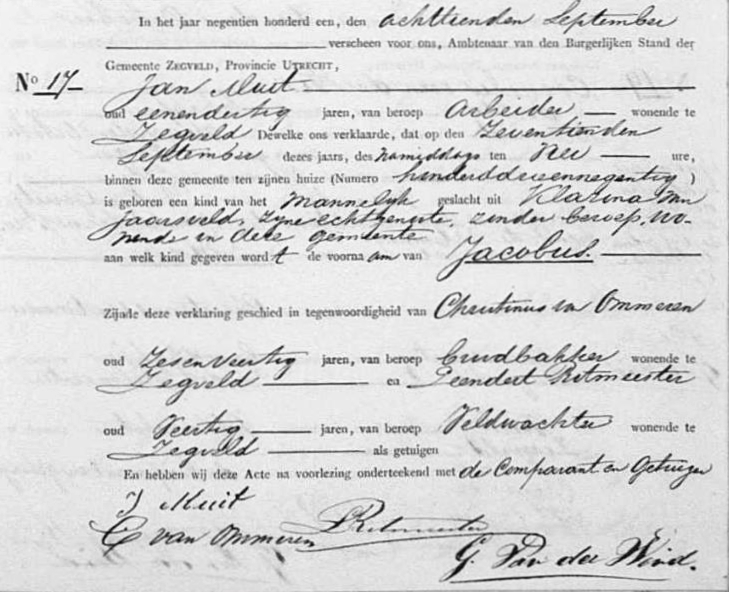 In het jaar negentien honderd een, den achttienden September
verscheen voor ons, Ambtenaar van den Burgerlijken Stand der
Gemeente ZEGVELD, Provincie UTRECHT,
No 17
Jan Muit
oud eenendertig jaren, van beroep Arbeider wonende te
Zegveld Dewelke ons verklaarde, dat op den Zeventienden
September dezes jaars, des namiddags ten Vier ure,
binnen deze gemeente ten zijnen huize (Numero honderddrieennegentig)
is geboren een kind van het Mannelijk geslacht uit Klazina van
Jaarsveld, zijne echtgenoote, zonder beroep, wo-
nende in deze gemeente
aan welk kind gegeven wordt de voornaam van Jacobus.
Zijnde deze verklaring geschied in tegenwoordigheid van Christinus van Ommeren
oud Zesenveertig jaren, van beroep broodbakker wonende te
Zegveld en Leendert Ritmeester
oud Veertig jaren, van beroep Veldwachter wonende te
Zegveld als getuigen
En hebben wij deze Acte na voorlezing onderteekend met de Comparant en Getuigen
J Muit
C van Ommeren LRitmeester
G. Van der Wind.